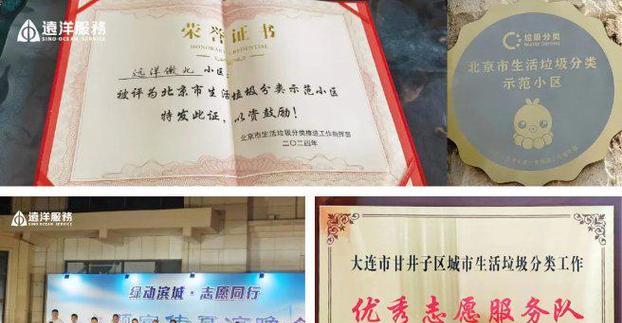 遠洋服務
SINO-OCEAN SERVICE
荣誉证书
HONORARY CREDENTIAL
远洋傲北 小区:
被评为北京市生活垃圾分类示范小区
特发此证,以资鼓励!
北京市生活垃圾分类推进工作指挥部
二〇二四年
垃圾分类
Waste Sorting
北京市生活垃圾分类
示范小区
遠洋服務
SINO-OCEAN SERVICE
绿动滨城·志愿同行
大连市甘井子区城市生活垃圾分类工作
优秀志愿服务队